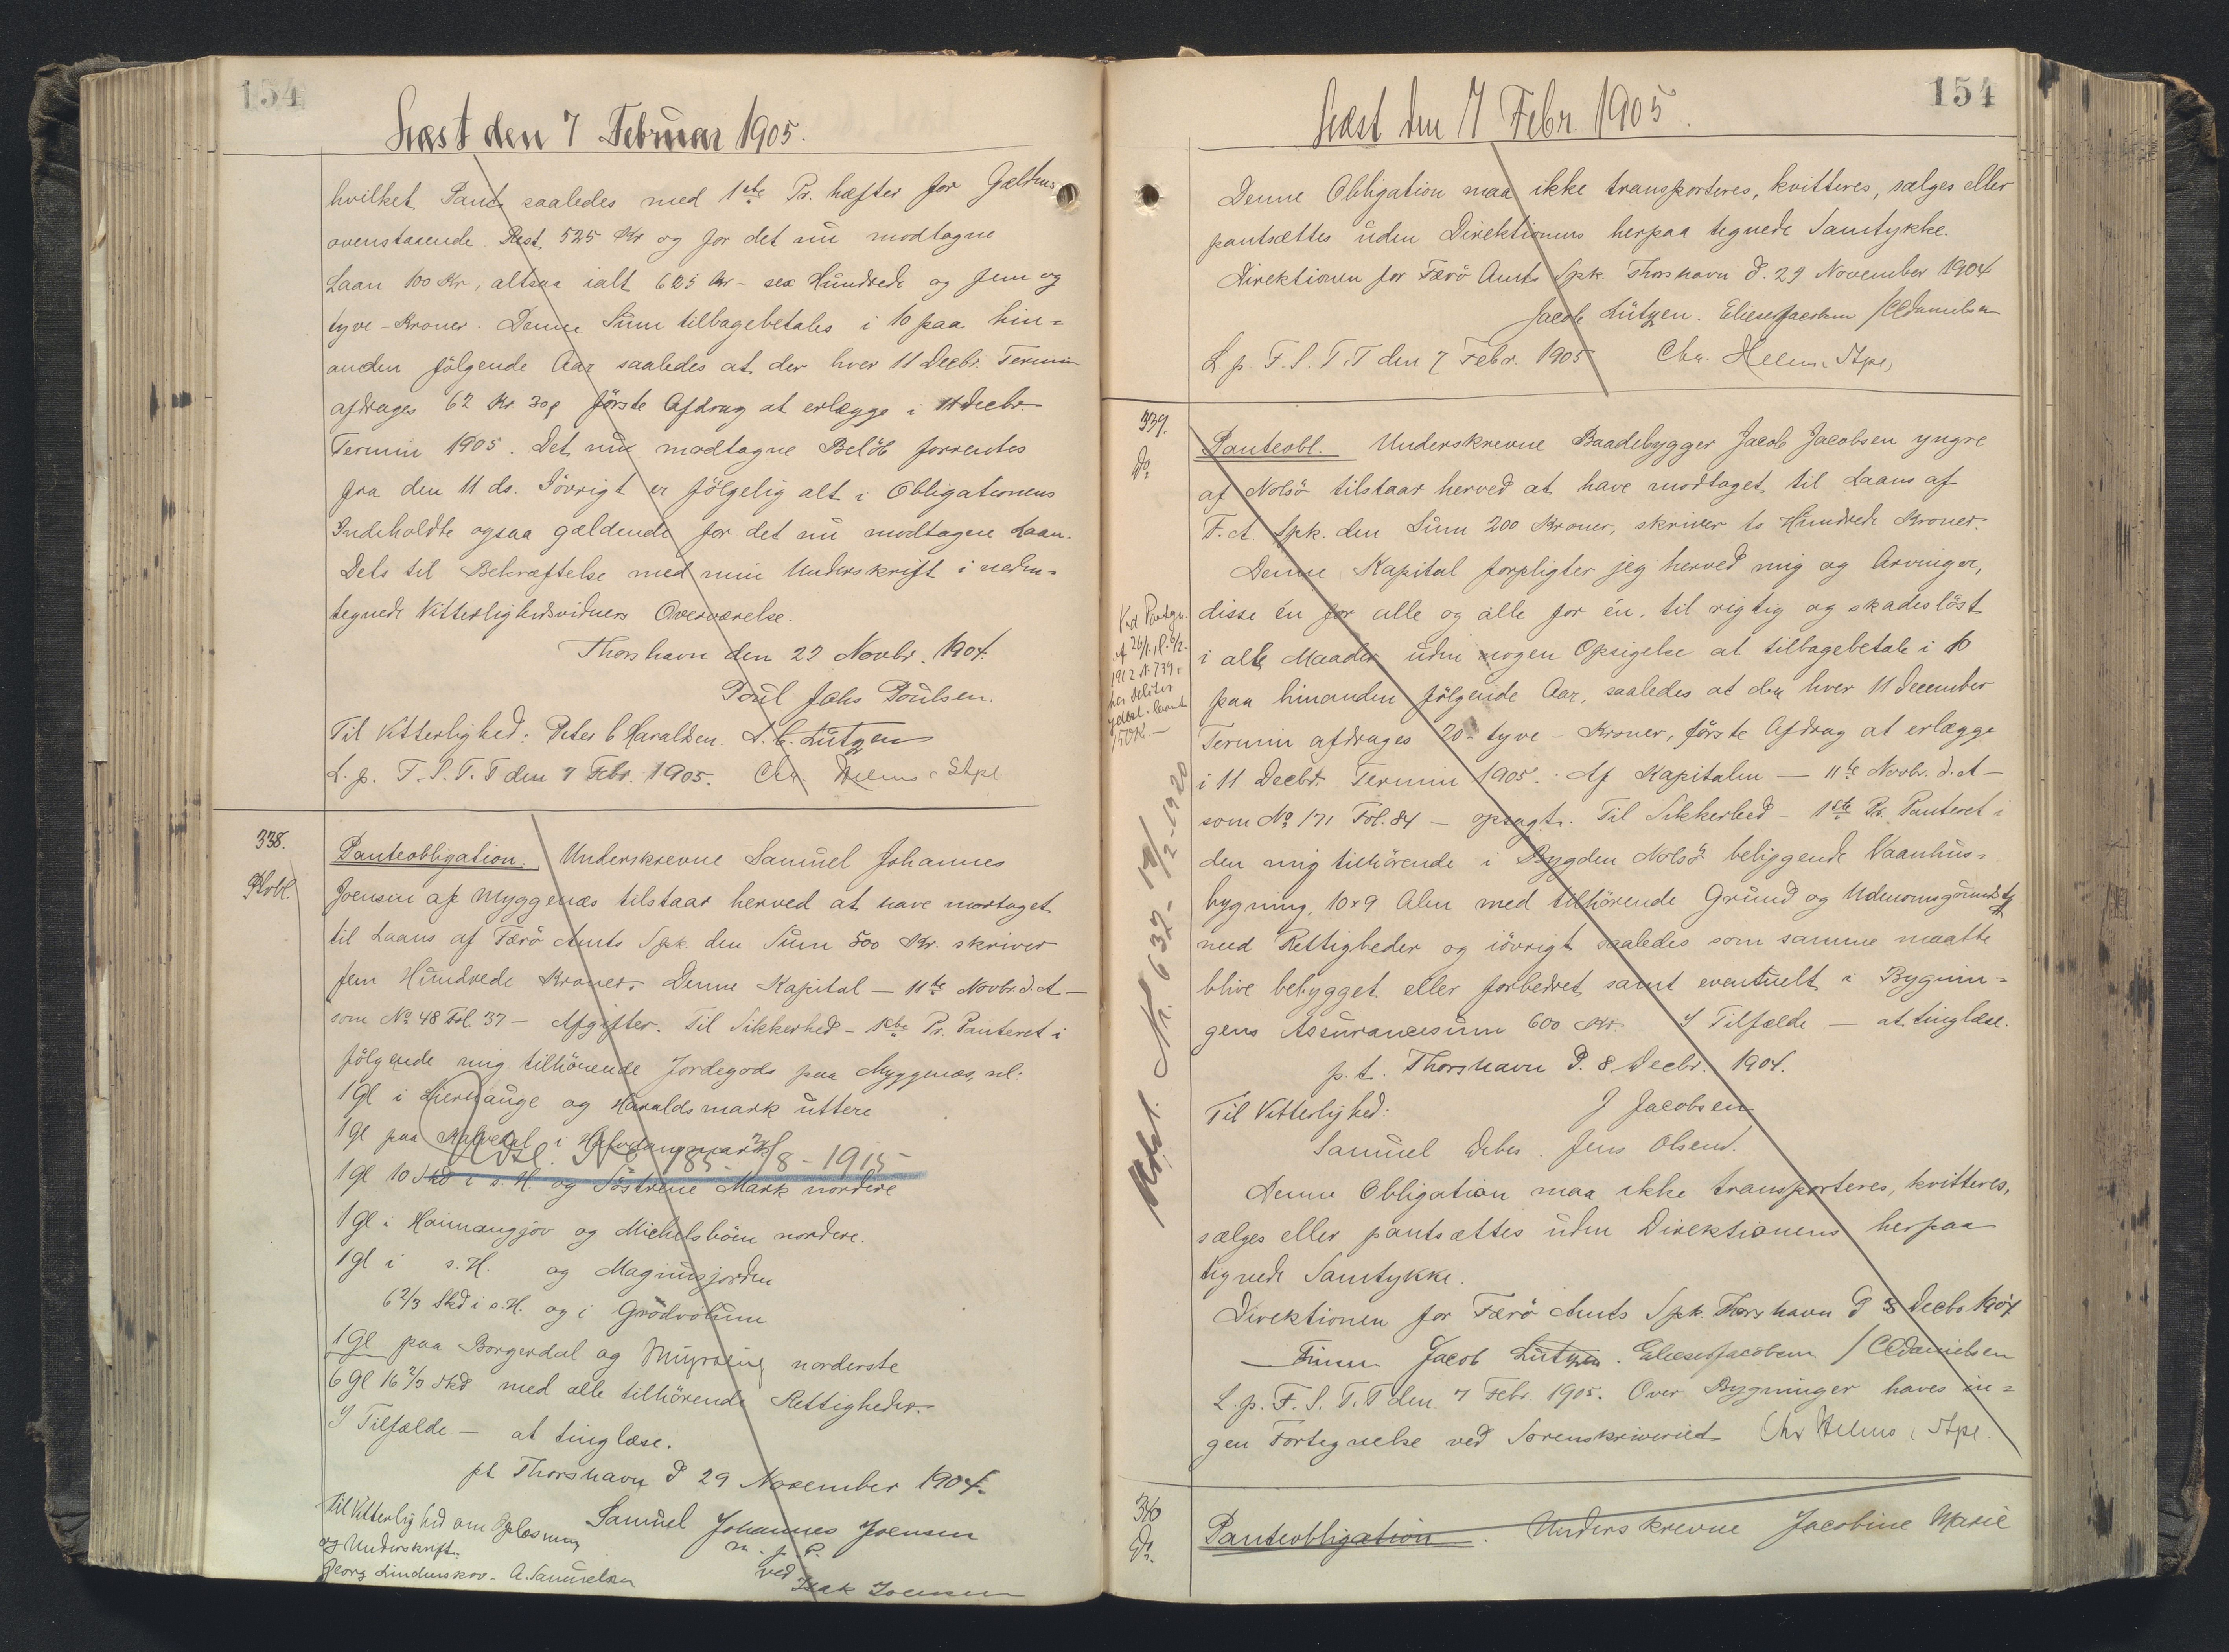 154
Læst den 7 Februar 1905.
hvilket Pant saaledes med 1ste Pr. hæfter for Gældens
ovenstaaende Rest, 525 Kr og for det nu modtagne
Laan 100 Kr, altsaa ialt 625 Kr - sex Hundrede og fem og
tyve - Kroner. Denne Sum tilbagebetales i 10 paa hin=
anden følgende Aar saaledes at der hver 11 Decbr. Termin
afdrages 62 Kr. 30 første Afdrag at erlægge i 11 Decbr.
Termin 1905. Det nu modtagne Beløb forrentes
fra den 11 ds. Iøvrigt er følgelig alt i Obligationens
Indeholdte ogsaa gældende for det nu modtagne Laan.
Dets til Bekræftelse med min Underskrift i neden=
tegnede Vitterlighedsvidners Overværelse.
Thorshavn den 22 Novbr. 1904.
Poul Johs Poulsen.
Til Vitterlighed: Peter C Haraldsen. A. C. Lützen
L. p. F. S. T. T den 7 Febr. 1905. Chr. Helms, Stpl
338.
Pkobl.
Panteobligation. Underskrevne Samuel Johannes
Joensen af Myggenæs tilstaar herved at have mortaget
til Laans af Færø Amts Spk. den Sum 500 Kr. skriver
fem Hundrede Kroner. Denne Kapital — 11te Novbr. d. A —
som No 48 Fol. 37 — Afgifter. Til Sikkerhed - 1ste Pr. Panteret i
følgende mig tilhørende Jordegods paa Myggenæs, nl:
1 Gl i Lierhauge og Haraldsmark uttere
1 Gl paa i
Udsl. No 185 - /8 - 1915
1 Gl 10 Skd i s. H. og Søstrene Mark nordere
1 Gl i Haimangjov og Michelsbøen nordere.
1 Gl i s. H. og Magnusjorden
6 2/3 Skd i s. H. og i Grødvolum
1 Gl paa Borgerdal og norderste
6 Gl 16 2/3 Skd med alle tilhørende Rettigheder.
I Tilfælde — at tinglæse.
pt Thorshavn d 29 November 1904.
Til Vitterlighed om Oplæsning Samuel Johannes Joensen
og Underskrift: m. f. P.
Georg Lindenskov - A. Samuelsen ved Isak Joensen
154
Læst den 7 Febr. 1905.
Denne Obligation maa ikke transporteres, kvitteres, sælges eller
pantsættes uden Direktionens herpaa tegnede Samtykke.
Direktionen for Færø Amts Spk. Thorshavn d. 29 November 1904
Jacob Lützen. Elieser Jacobsen / CC Danielsen
L. p. F. S. T. T den 7 Febr. 1905 Chr. Helms, Stpl,
339.
Do.
Panteobl. Underskrevne Baadebygger Jacob Jacobsen yngre
af Nolsø tilstaar herved at have modtaget til Laans af
F. A. Spk. den Sum 200 Kroner, skriver to Hundrede Kroner.
Denne Kapital forpligter jeg herved mig og Arvinger,
disse én for alle og alle for én, til rigtig og skadesløst
i alle Maader uden nogen Opsigelse at tilbagebetale i 10
paa hinanden følgende Aar, saaledes at der hver 11 December
Termin afdrages 20 - tyve - Kroner, første Afdrag at erlægge
i 11 Decbr. Termin 1905. Af Kapitalen — 11te Novbr. d. A —
som No 171 Fol. 84 — opsagt. Til Sikkerhed - 1ste Pr. Panteret i
den mig tilhørende i Bygden Nolsø beliggende Vaanhus=
bygning, 10x9 Alen med tilhørende Grund og Udenomsgrundstk
med Rettigheder og iøvrigt saaledes som samme maatte
blive bebygget eller forbedret samt eventuelt i Bygnin=
gens Assurancesum 600 Kr. I Tilfælde — at tinglæse.
p. t. Thorshavn d. 8 Decbr. 1904.
Til Vitterlighed: J Jacobsen
Samuel Debes. Jens Olsen.
Denne Obligation maa ikke transporteres, kvitteres,
sælges eller pantsættes uden Direktionens herpaa
tegnede Samtykke.
Direktionen for Færø Amts Spk. Thorshavn d 8 Decbr 1904
Finsen Jacob Lützen. Elieser Jacobsen / CC Danielsen
L. p. F. S. T. T den 7 Febr. 1905. Over Bygninger haves in=
gen Fortegnelse ved Sorenskriveriet Chr Helms, Stpl.
Ved Pantgn.
af 26/1, l. 6/2-
1912 N. 739
her
150 K. —
Udsl. Nr. 632 - 13/2 - 1920
340
Do.
Panteobligation. Underskrevne Jacobine Marie